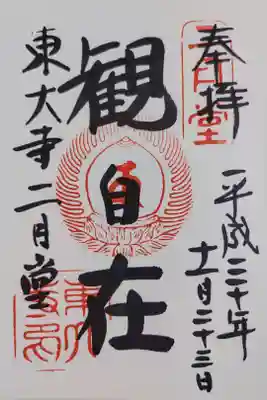 奉拝
二月堂
平成三十年
十一月二十三日
観自在
東大寺二月堂